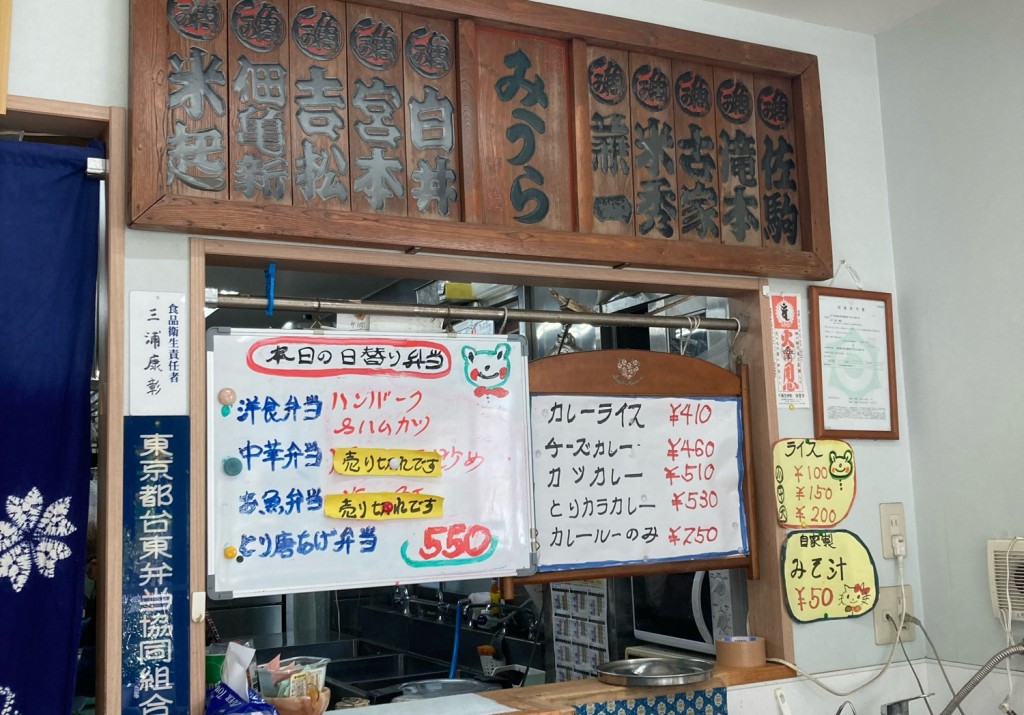 魚河岸 米起
魚河岸 佃亀新
魚河岸 吉松
魚河岸 宮本
魚河岸 白井
みうら
佐駒
滝本
古家
米秀
食品衛生責任者
三浦康彰
東京都台東弁当協同組合
本日の日替り弁当
洋食弁当 ハンバーク
&ハムカツ
中華弁当 売り切れです 炒め
お魚弁当 売り切れです
とり唐あげ弁当 550
カレーライス ¥410
チーズカレー ¥460
カツカレー ¥510
とりカラカレー ¥530
カレールーのみ ¥250
火の用心
ライス
小 ¥100
中 ¥150
大 ¥200
自家製
みそ汁
¥50